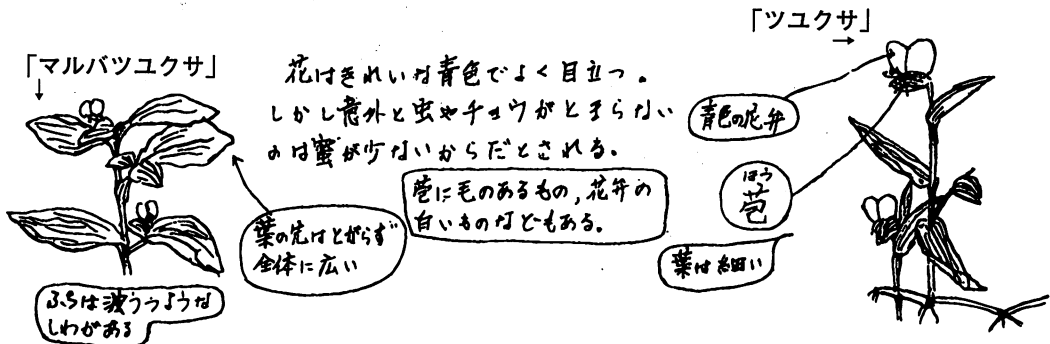 「マルバツユクサ」
花はきれいな青色でよく目立つ。
しかし意外と虫やチョウがとまらない
のは蜜が少ないからだとされる。
苞に毛のあるもの,花弁の
白いものなどもある。
葉の先はとがらず
全体に広い
ふちは波うつような
しわがある
「ツユクサ」
青色の花弁
ほう
苞
葉は細い